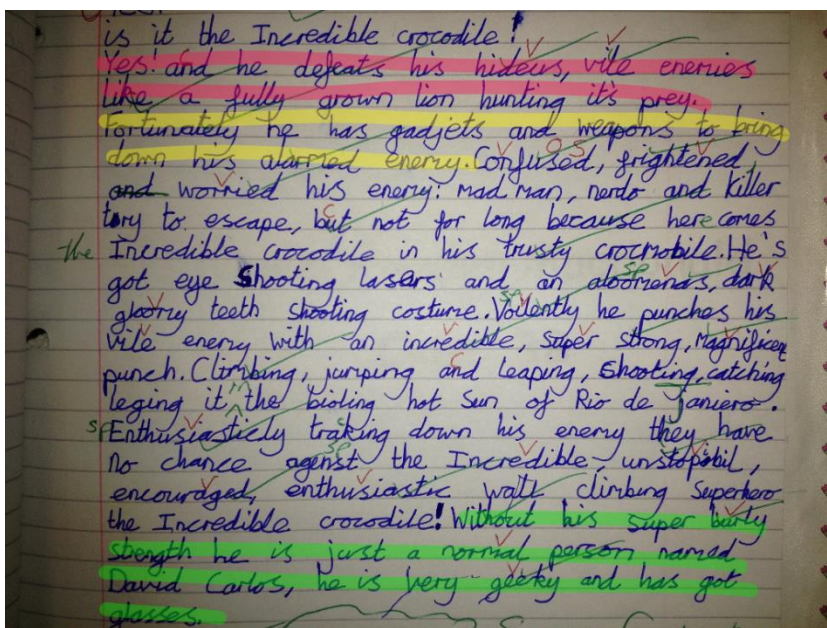 is it the Incredible crocodile!
Yes! and he defeats his hideus, vile enemies
Like a fully grown lion hunting it's prey.
Fortunately he has gadjets and weapons to bring
down his alarmed enemy. Confused, frightened
and worried his enemy: mad man, nerdo and killer
tory to escape, but not for long because here comes
the Incredible crocodile in his trusty crocmobile. He's
got eye Shooting lasers and an aloomenos, dark
gloomy teeth shooting costume. Voilently he punches his
vile enemy with an incredible, super strong, Magnificent
punch. Climbing, jumping and leaping, Shooting, catching
leging it, in the bioling hot Sun of Rio de Janiero.
sp Enthusiasticly traking down his enemy they have
no chance agenst the Incredible, unstopibil,
encouraged, enthusiastic wall climbing Superhero
the Incredible crocodile! Without his super burly
strength he is just a normal person named
David Carlos, he is very geeky and has got
glasses.